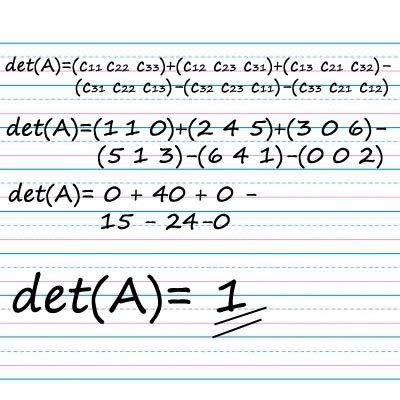 det(A)=(c₁₁ c₂₂ c₃₃)+(c₁₂ c₂₃ c₃₁)+(c₁₃ c₂₁ c₃₂)−
(c₃₁ c₂₂ c₁₃)−(c₃₂ c₂₃ c₁₁)−(c₃₃ c₂₁ c₁₂)
det(A)=(1 1 0)+(2 4 5)+(3 0 6)−
(5 1 3)−(6 4 1)−(0 0 2)
det(A)= 0 + 40 + 0 −
15 − 24−0
det(A)= 1